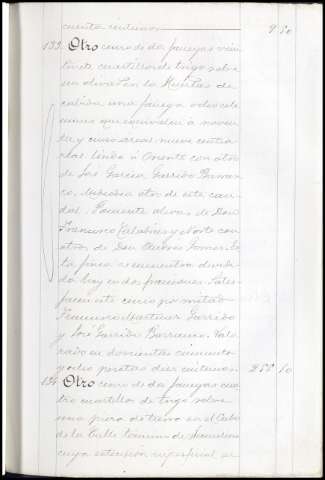 cuenta centimos 9 50
133. Otro censo de dos fanegas vein
tiseis cuartillos de trigo sobre
un olivar en la Huertas de
cabida una fanega ocho cele
mines que equivalen a noven
ta y cinco areas nueve centia
reas linda á Oriente con otro
de José Garcia Garrido Barran
co, Mediodia otro de este cau
dal, Poniente olivar de Don
Francisco y Norte con
otros de Don Gomez. Es
ta finca se encuentra dividi
da hoy en dos fracciones. Satis
facen este censo por mitad
Francisco Martinez Garrido
y José Garrido Barranco. Valo
rado en doscientas cincuenta
y ocho pesetas diez centimos. 258 10
134 Otro censo de dos fanegas cua
tro cuartillos de trigo sobre
una pieza de tierra en el
de la Calle termino de
cuya estension superficial se